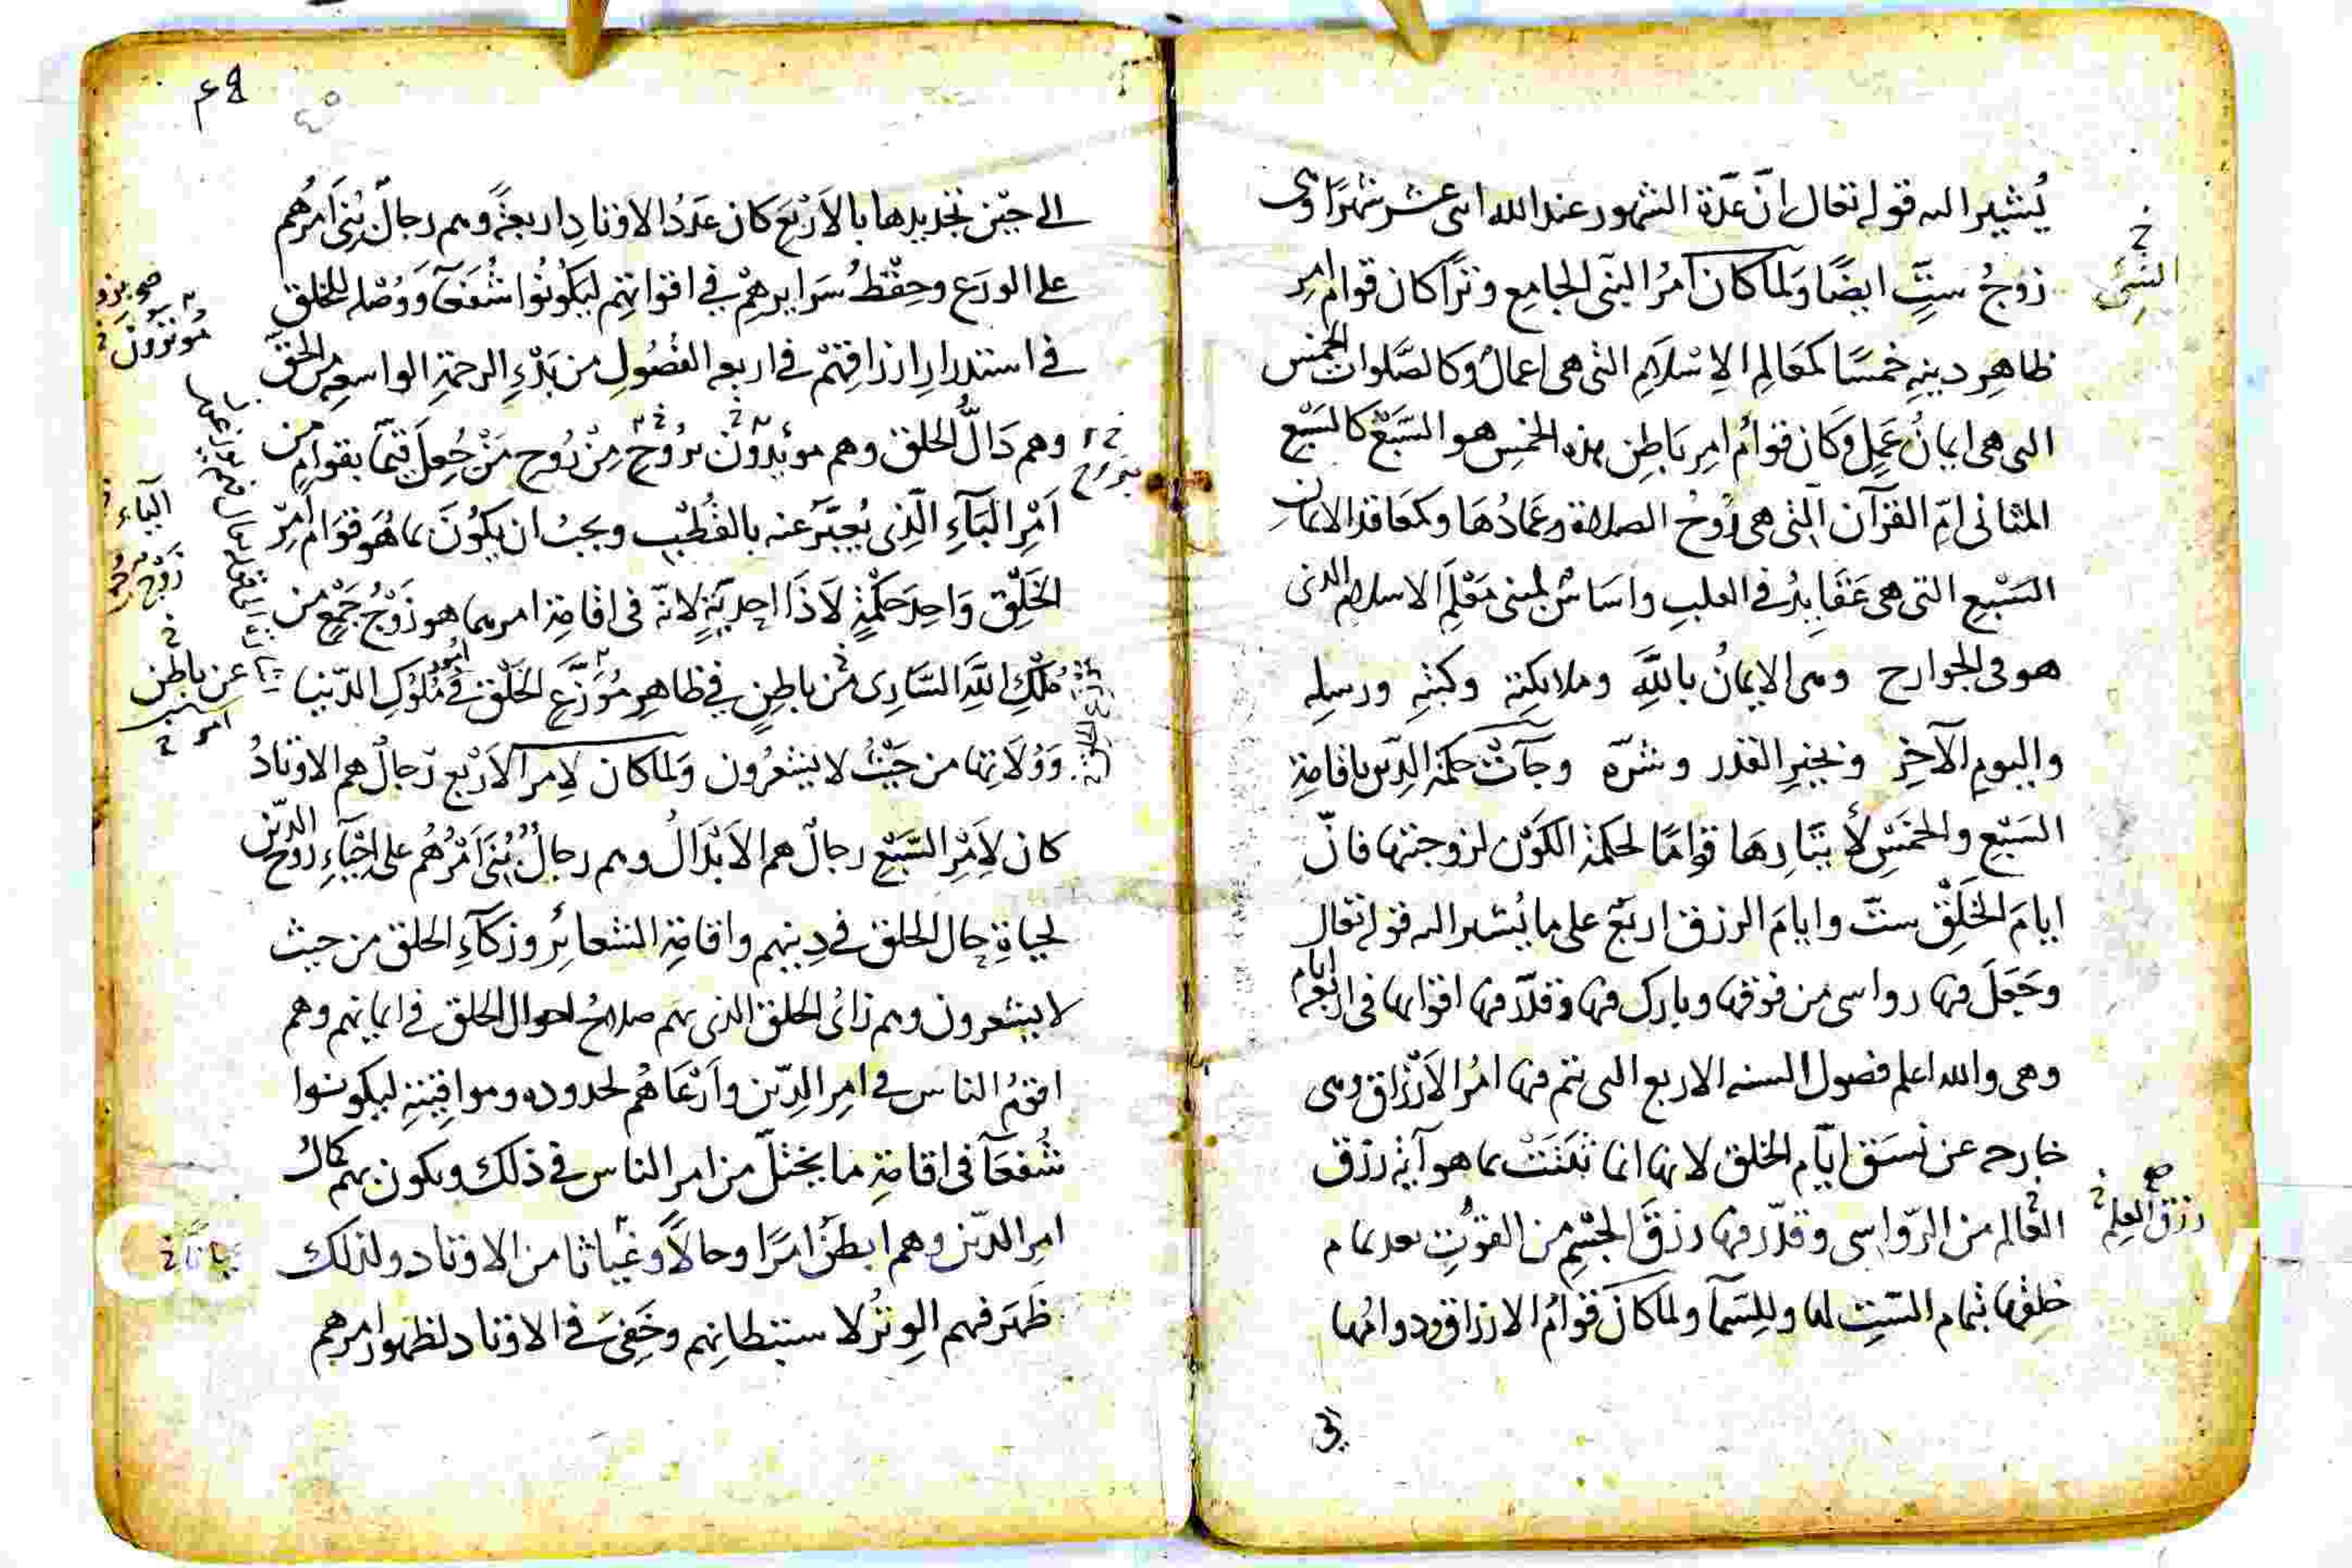 يُشير اليه قوله تعالى إنّ عدّة الشهور عند الله اثنى عشر شهرًا وهى
زوجُ ستٍّ ايضًا ولما كان امرُ النبى الجامع وترًا كان قوام امر
ظاهِر دينِهِ خمسًا كمعالِم الإسلام التى هى اعمالٌ وكالصَّلوات الخمس
التى هى ايمانُ عَمِلٍ وكان قوامُ امر باطِن هذه الخمس هو السَّبْع كالسَبْع
المثانى امّ القرآن التى هى رُوحُ الصلاة وعمادُها وكمعاقد الايمان
السَبْع التى هى عَقَايِدُ فى القلب واساسٌ لمبنى مَعْلَم الاسلام الذى
هو فى الجوارح وهى الايمانُ بالله وملايكته وكتبه ورسله
واليوم الآخِر وبخير القدر وشرّه وجآت حكمة الدّين باقامة
السَبْع والخمسِ لأيتارها قوامًا لحكمة الكون لزوجيتها فانّ
ايام الخَلق ستّ وايام الرزق اربع على ما يُشير اليه قوله تعالى
وجَعَلَ فيها رواسى من فوقها وبارك فيها وقدّر فيها اقواتها فى اربعة ايام
وهى والله اعلم فصول السنه الاربع التى تتم فيها امرُ الارزاق وهى
خارجه عن نَسَق ايّام الخلق لانها انما ثبتت بما هو آية رزق
العالم من الرّواسى وقدّر فيها رزق الجسْم من القُوتِ بعد تمام
خلقها بتمام السّتِ لها وللسمآ ولما كان قوامُ الارزاق ودوامُها
الى
النبى خ
رزق العلم خ صح
الى حين تجديدها بالأربع كان عَدَدُ الاوتادِ اربعةً وهم رجالٌ بُنِى امرُهم
على الورَع وحِفْظ سرايرهم فى اقواتهم ليكونُوا شُفَعَآ وَوُصْله للخلق
فى استدرار ارزاقهم فى اربعه الفصُولِ من بَدْءِ الرحمة الواسعه من الحقّ
وهم دَالُّ الخلق وهم مويدون بروحٍ مِنْ رُوح مَنْ جُعِلَ قيّمًا بقوامٍ من
أمْر البَآءِ الّذى يُعبَّر عنه بالقُطْب ويجبُ ان يكُونَ بما هُوَ قوَام امر
الخَلْق وَاحِدَ حكمةٍ لا ذَا احديّةٍ لانّه فى اقامة امر بما هو زَوْجُ جَمْعٍ من
مُلْكِ اللَّه السَّارى من باطِنٍ فى ظاهِر مُوَزَّع الخَلْق فى مُلُوك الدّنيا
وَوُلَاتها من حَيْثُ لا يشعُرُون ولما كان لِامر الأرْبَع رجالٌ هم الاوتادُ
كان لأمْرِ السَّبْع رجالٌ هم الأبْدَالُ وهم رجالٌ بُنِىَ أمْرُهُم على احْيَاءِ رُوح الدّين
لحياةِ حال الخلق فى دينهم واقامة الشعائر وزكآءِ الخلق من حيث
لا يشعرون وهم زائ الخلق الذى بهم صلاحُ احوال الخلق فى ايمانهم وهم
اقومُ الناس فى امر الدّين وأرْعَاهُم لحدوده ومواقيته ليكونوا
شُفعَآ فى اقامةِ ما يختلّ من امر الناس فى ذلك ويكون بهم كمالُ
امر الدّين وهم ابطنُ امرًا وحالًا وغياثا من الاوتاد ولذلك
ظَهَر فيهم الوِتْرُ لاستبطانهم وخَفِىَ فى الاوتاد لظهور امرهم
بروح
البآء
عن باطن
امر